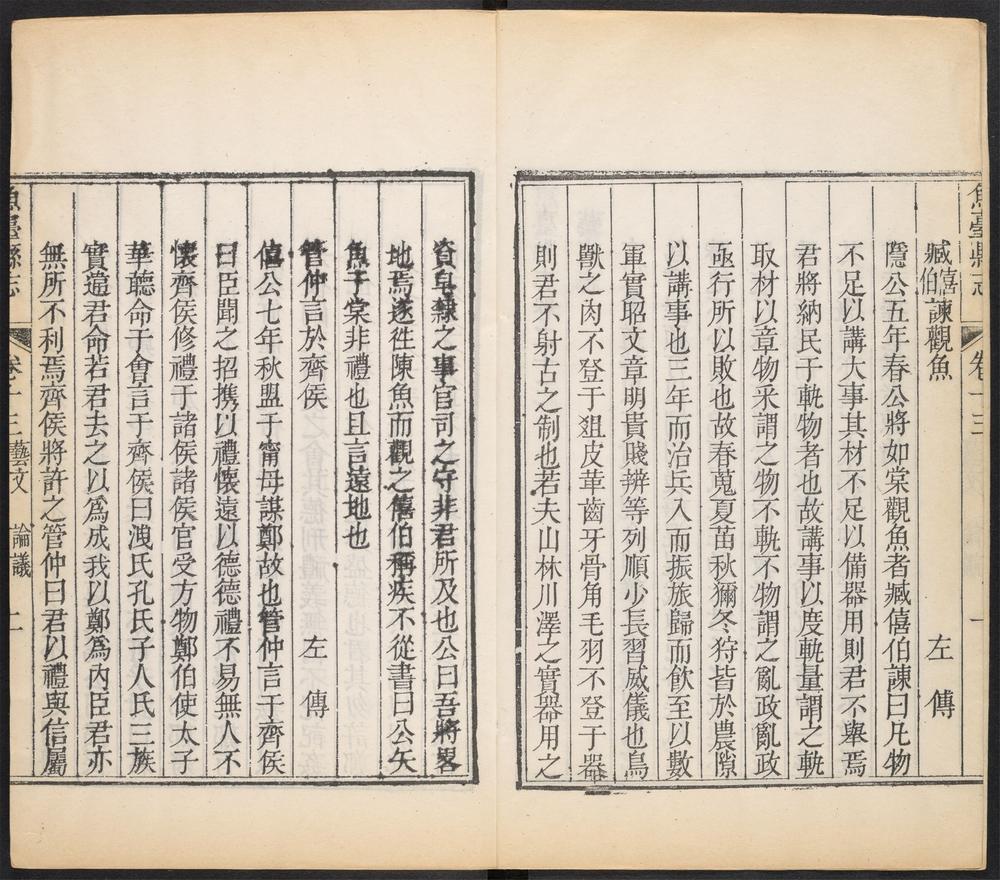 魚臺縣志 卷十三 一
臧僖伯諫觀魚 左傳
隱公五年春公將如棠觀魚者臧僖伯諫曰凡物
不足以講大事其材不足以備器用則君不舉焉
君將納民于軌物者也故講事以度軌量謂之軌
取材以章物采謂之物不軌不物謂之亂政亂政
亟行所以敗也故春蒐夏苗秋獮冬狩皆於農隙
以講事也三年而治兵入而振旅歸而飲至以數
軍實昭文章明貴賤辨等列順少長習威儀也鳥
獸之肉不登于俎皮革齒牙骨角毛羽不登于器
則君不射古之制也若夫山林川澤之實器用之
資皁隸之事官司之守非君所及也公曰吾將畧
地焉遂徃陳魚而觀之僖伯稱疾不從書曰公矢
魚于棠非禮也且言遠地也
管仲言於齊侯 左傳
僖公七年秋盟于甯母謀鄭故也管仲言于齊侯
曰臣聞之招携以禮懷遠以德德禮不易無人不
懷齊侯修禮于諸侯諸侯官受方物鄭伯使太子
華聽命于會言于齊侯曰洩氏孔氏子人氏三族
實違君命若君去之以爲成我以鄭爲内臣君亦
無所不利焉齊侯將許之管仲曰君以禮與信屬
魚臺縣志 卷十三 藝文 論議 二